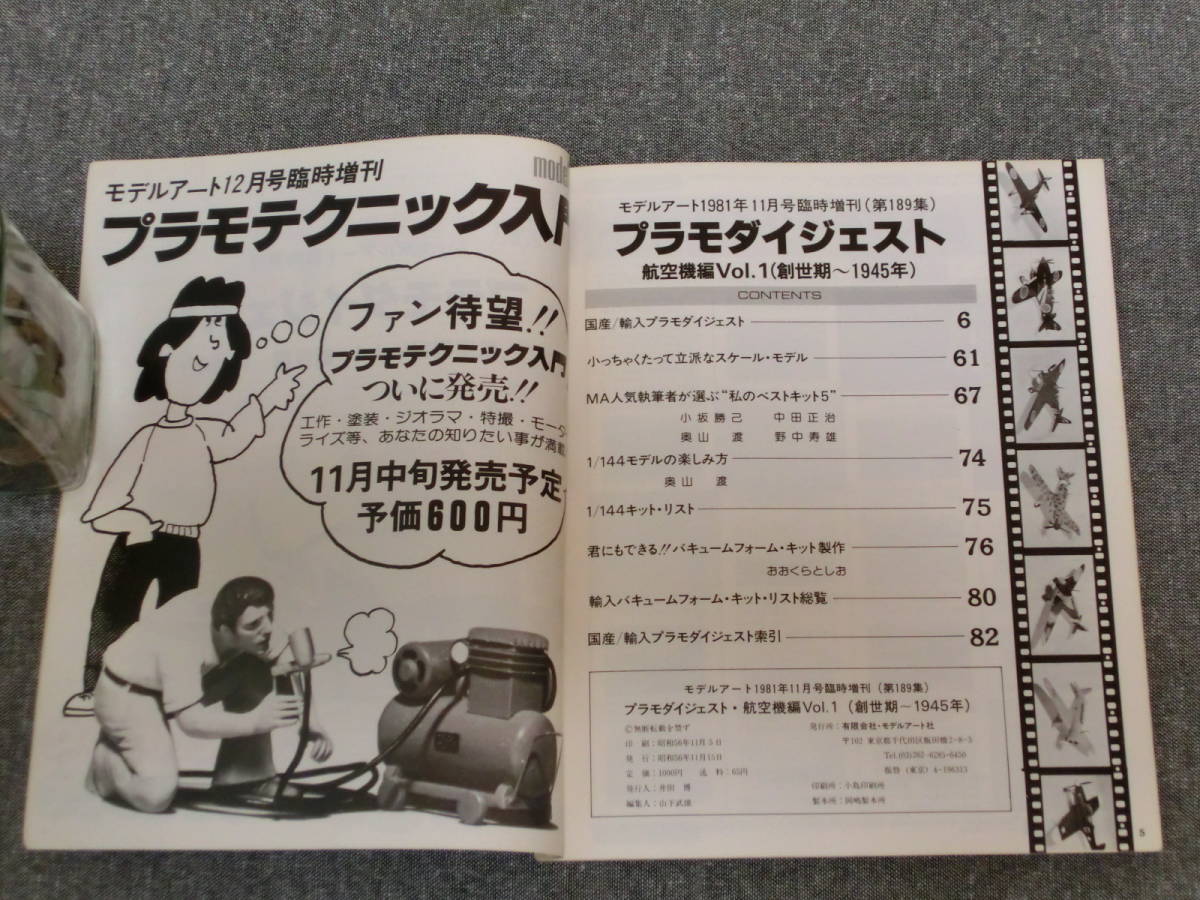 モデルアート12月号臨時増刊
mode
プラモテクニック入門
ファン待望!!
プラモテクニック入門
ついに発売!!
工作・塗装・ジオラマ・特撮・モータ
ライズ等、あなたの知りたい事が満載
11月中旬発売予定
予価600円
モデルアート1981年11月号臨時増刊(第189集)
プラモダイジェスト
航空機編Vol.1(創世期〜1945年)
CONTENTS
国産/輸入プラモダイジェスト 6
小っちゃくたって立派なスケール・モデル 61
MA人気執筆者が選ぶ“私のベストキット5” 67
小坂勝己 中田正治
奥山 渡 野中寿雄
1/144モデルの楽しみ方 74
奥山 渡
1/144キット・リスト 75
君にもできる!!バキュームフォーム・キット製作 76
おおくらとしお
輸入バキュームフォーム・キット・リスト総覧 80
国産/輸入プラモダイジェスト索引 82
モデルアート1981年11月号臨時増刊(第189集)
プラモダイジェスト・航空機編Vol.1(創世期〜1945年)
©無断転載を禁ず
印 刷:昭和56年11月5日
発 行:昭和56年11月15日
定 価:1000円 送 料:65円
発行人:井田 博
編集人:山下武雄
発行所:有限会社・モデルアート社
〒102 東京都千代田区飯田橋2-8-5
Tel.(03)262-6285・6450
振替(東京)4-196313
印刷所:小島印刷所
製本所:岡嶋製本所
5